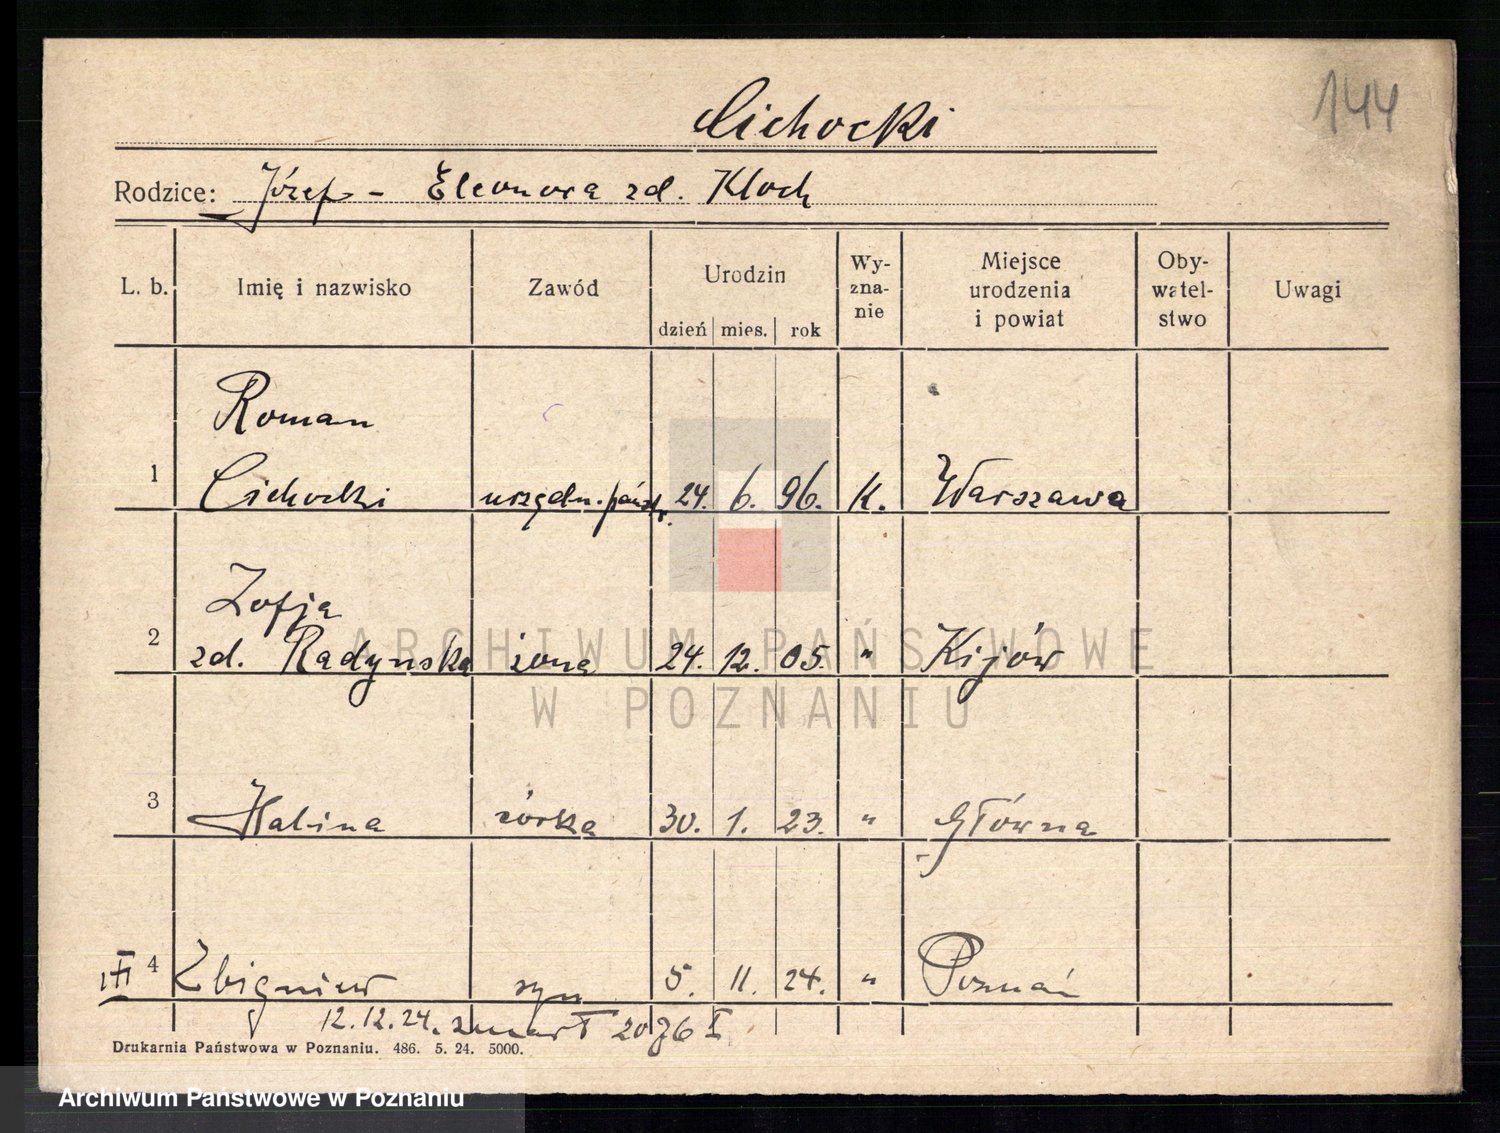 144
Cichocki
Rodzice: Józef - Eleonora zd. Kloch
L. b. Imię i nazwisko Zawód Urodzin Wy-zna-nie Miejsce urodzenia i powiat Oby-watel-stwo Uwagi
dzień mies. rok
Roman
1 Cichocki urzędn. państr. 24. 6. 96. K. Warszawa
Zofja
2 zd. Radynska żona 24. 12. 05. " Kijów
ARCHIWUM PAŃSTWOWE
W POZNANIU
3 Halina córka 30. 1. 23. " Główna
4 Zbigniew syn 5. 11. 24. " Poznań
12.12.24. zmarł
Drukarnia Państwowa w Poznaniu. 486. 5. 24. 5000.
Archiwum Państwowe w Poznaniu